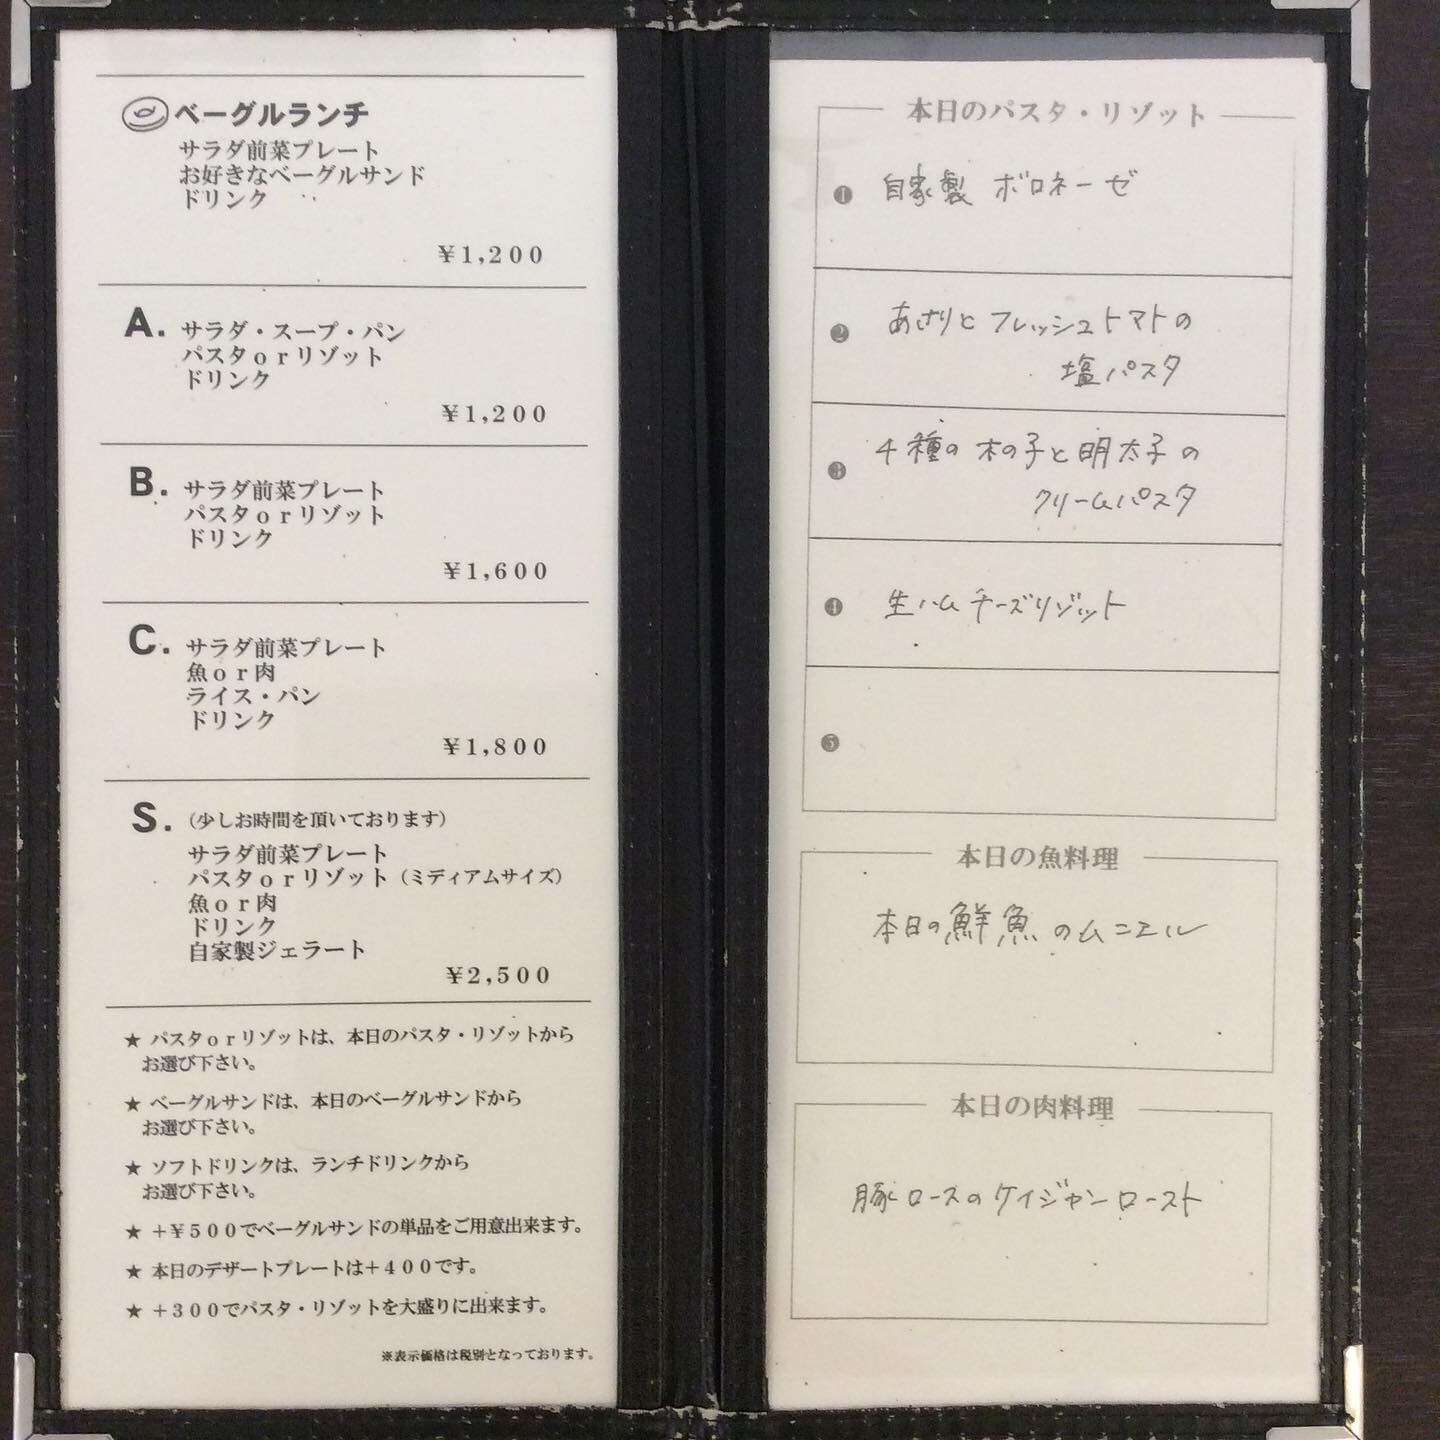 ベーグルランチ
サラダ前菜プレート
お好きなベーグルサンド
ドリンク
¥1,200
A. サラダ・スープ・パン
パスタorリゾット
ドリンク
¥1,200
B. サラダ前菜プレート
パスタorリゾット
ドリンク
¥1,600
C. サラダ前菜プレート
魚or肉
ライス・パン
ドリンク
¥1,800
S. (少しお時間を頂いております)
サラダ前菜プレート
パスタorリゾット(ミディアムサイズ)
魚or肉
ドリンク
自家製ジェラート
¥2,500
★ パスタorリゾットは、本日のパスタ・リゾットから
お選び下さい。
★ ベーグルサンドは、本日のベーグルサンドから
お選び下さい。
★ ソフトドリンクは、ランチドリンクから
お選び下さい。
★ +¥500でベーグルサンドの単品をご用意出来ます。
★ 本日のデザートプレートは+400です。
★ +300でパスタ・リゾットを大盛りに出来ます。
※表示価格は税別となっております。
本日のパスタ・リゾット
❶ 自家製 ボロネーゼ
❷ あさりとフレッシュトマトの
塩パスタ
❸ 4種の木の子と明太子の
クリームパスタ
❹ 生ハムチーズリゾット
❺
本日の魚料理
本日の鮮魚のムニエル
本日の肉料理
豚ロースのケイジャンロースト